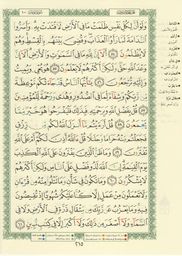 وَلَوْ أَنَّ لِكُلِّ نَفْسٍ ظَلَمَتْ مَا فِي ٱلْأَرْضِ لَٱفْتَدَتْ بِهِۦ وَأَسَرُّوا۟
ٱلنَّدَامَةَ لَمَّا رَأَوُا۟ ٱلْعَذَابَ وَقُضِيَ بَيْنَهُم بِٱلْقِسْطِ وَهُمْ
لَا يُظْلَمُونَ ٥٤ أَلَآ إِنَّ لِلَّهِ مَا فِي ٱلسَّمَٰوَٰتِ وَٱلْأَرْضِ أَلَآ
إِنَّ وَعْدَ ٱللَّهِ حَقٌّ وَلَٰكِنَّ أَكْثَرَهُمْ لَا يَعْلَمُونَ ٥٥ هُوَ يُحْيِۦ وَيُمِيتُ
وَإِلَيْهِ تُرْجَعُونَ ٥٦ يَٰٓأَيُّهَا ٱلنَّاسُ قَدْ جَآءَتْكُم مَّوْعِظَةٌ مِّن
رَّبِّكُمْ وَشِفَآءٌ لِّمَا فِي ٱلصُّدُورِ وَهُدًى وَرَحْمَةٌ لِّلْمُؤْمِنِينَ
٥٧ قُلْ بِفَضْلِ ٱللَّهِ وَبِرَحْمَتِهِۦ فَبِذَٰلِكَ فَلْيَفْرَحُوا۟ هُوَ خَيْرٌ
مِّمَّا يَجْمَعُونَ ٥٨ قُلْ أَرَءَيْتُم مَّآ أَنزَلَ ٱللَّهُ لَكُم
مِّن رِّزْقٍ فَجَعَلْتُم مِّنْهُ حَرَامًا وَحَلَٰلًا قُلْ ءَآللَّهُ أَذِنَ لَكُمْ أَمْ عَلَى
ٱللَّهِ تَفْتَرُونَ ٥٩ وَمَا ظَنُّ ٱلَّذِينَ يَفْتَرُونَ عَلَى ٱللَّهِ ٱلْكَذِبَ
يَوْمَ ٱلْقِيَٰمَةِ إِنَّ ٱللَّهَ لَذُو فَضْلٍ عَلَى ٱلنَّاسِ وَلَٰكِنَّ أَكْثَرَهُمْ
لَا يَشْكُرُونَ ٦٠ وَمَا تَكُونُ فِي شَأْنٍ وَمَا تَتْلُوا۟ مِنْهُ مِن قُرْءَانٍ
وَلَا تَعْمَلُونَ مِنْ عَمَلٍ إِلَّا كُنَّا عَلَيْكُمْ شُهُودًا إِذْ تُفِيضُونَ
فِيهِ وَمَا يَعْزُبُ عَن رَّبِّكَ مِن مِّثْقَالِ ذَرَّةٍ فِي ٱلْأَرْضِ وَلَا فِي
ٱلسَّمَآءِ وَلَآ أَصْغَرَ مِن ذَٰلِكَ وَلَآ أَكْبَرَ إِلَّا فِي كِتَٰبٍ مُّبِينٍ ٦١
٢١٥